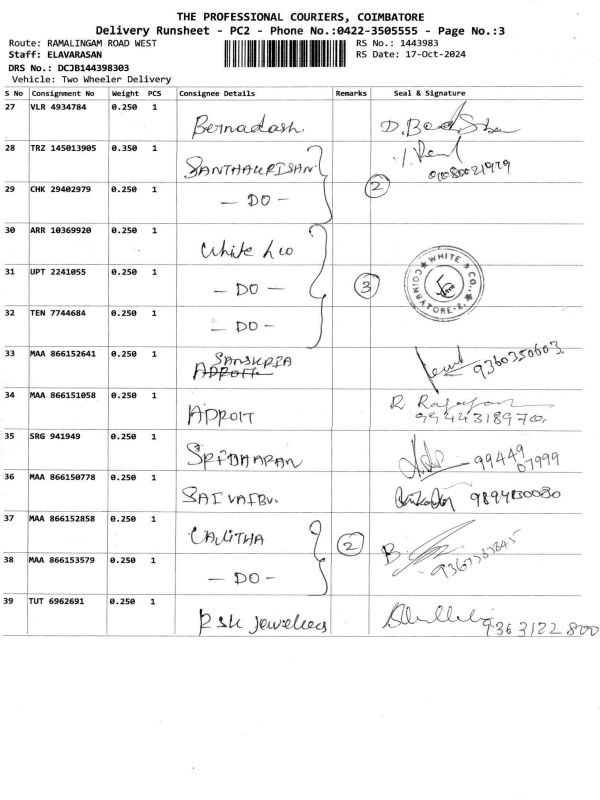 THE PROFESSIONAL COURIERS, COIMBATORE
Delivery Runsheet - PC2 - Phone No.:0422-3505555 - Page No.:3
Route: RAMALINGAM ROAD WEST RS No.: 1443983
Staff: ELAVARASAN RS Date: 17-Oct-2024
DRS No.: DCJB144398303
Vehicle: Two Wheeler Delivery
S No Consignment No Weight PCS Consignee Details Remarks Seal & Signature
27 VLR 4934784 0.250 1 Bernadash
28 TRZ 145013905 0.350 1
29 CHK 29402979 0.250 1 - DO - 2
30 ARR 10369920 0.250 1 White &co
31 UPT 2241055 0.250 1 - DO - 3 WHITE & CO. COIMBATORE-2.
32 TEN 7744684 0.250 1 - DO -
33 MAA 866152641 0.250 1 9360350603.
34 MAA 866151058 0.250 1 ADROIT R. 9944318970
35 SRG 941949 0.250 1 SRIDHARAN 99449 07999
36 MAA 866150778 0.250 1 SAI VAIBV. 9894130080
37 MAA 866152858 0.250 1 LALITHA 2 B.
38 MAA 866153579 0.250 1 - DO -
39 TUT 6962691 0.250 1 Rsk jewellers 9363122800